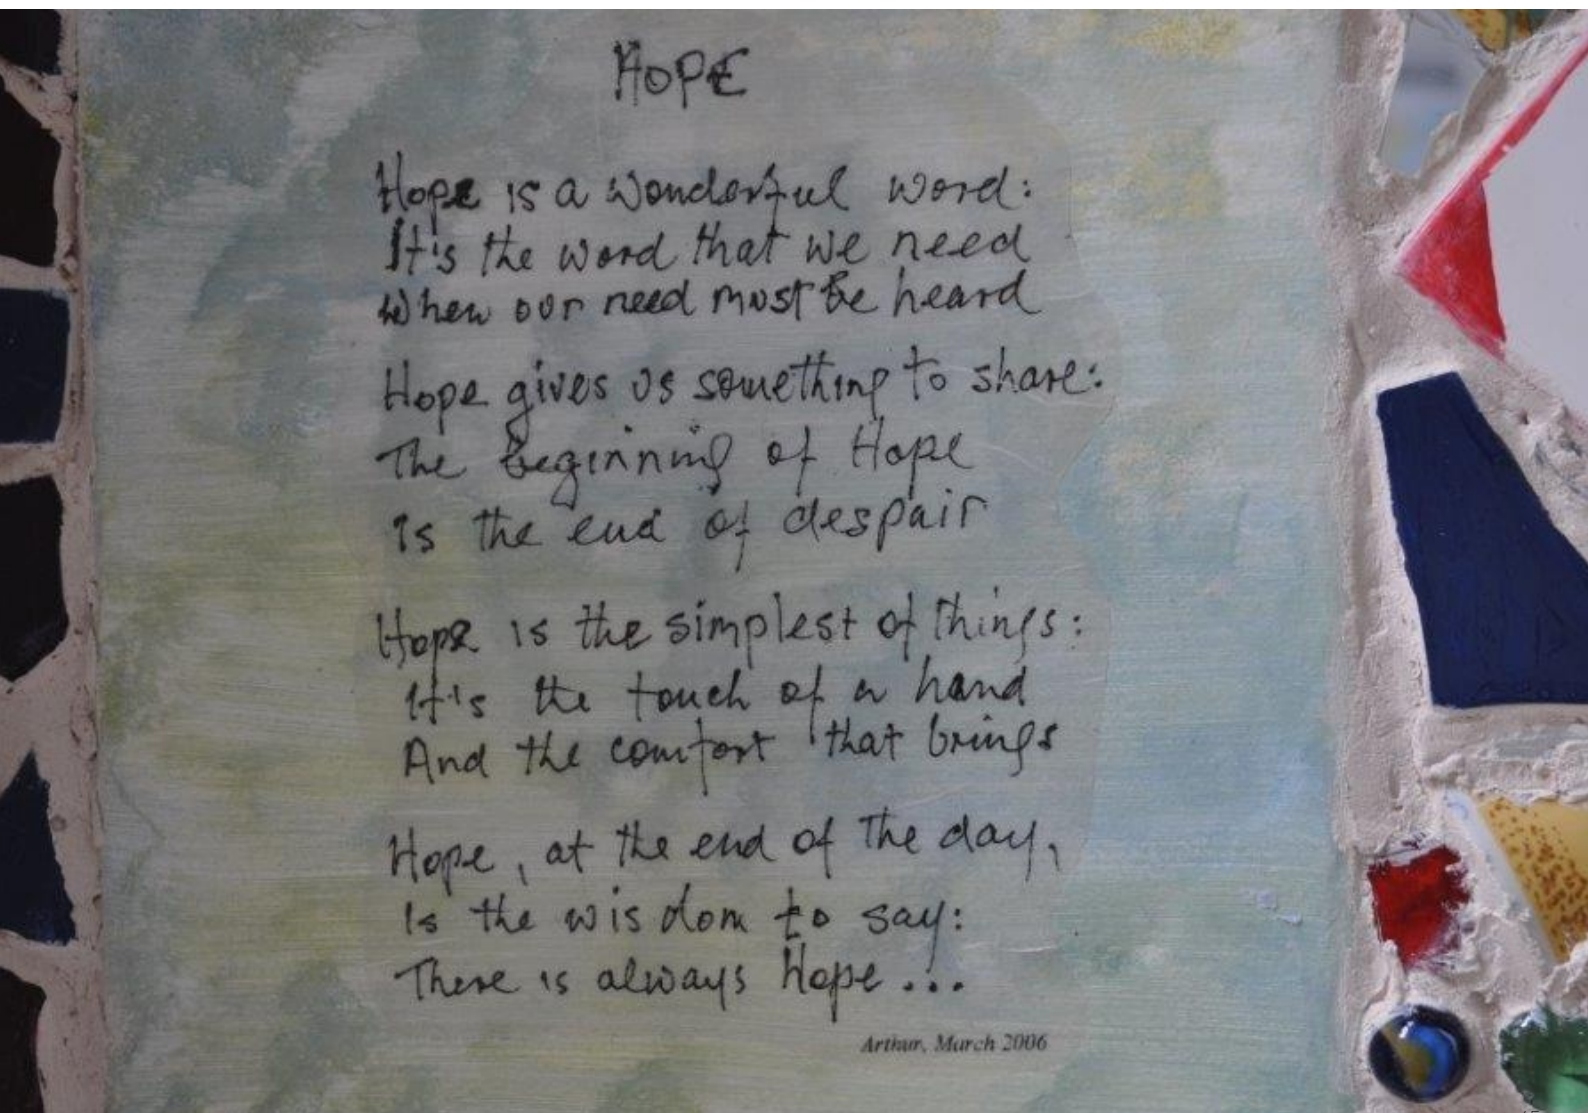 HOPE
Hope is a wonderful word:
It's the word that we need
When our need must be heard
Hope gives us something to share:
The beginning of Hope
Is the end of despair
Hope is the simplest of things:
It's the touch of a hand
And the comfort that brings
Hope, at the end of the day,
Is the wisdom to say:
There is always Hope...
Arthur, March 2006